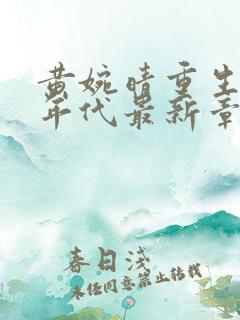 黄婉晴重生
年代最新章
春日浅
未经同意禁止转载